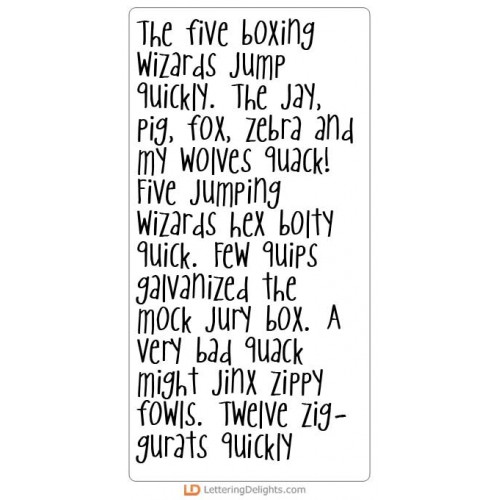 The five boxing
wizards jump
quickly. The jay,
pig, fox, zebra and
my wolves quack!
Five jumping
wizards hex bolty
quick. Few quips
galvanized the
mock jury box. A
very bad quack
might jinx zippy
fowls. Twelve zig-
gurats quickly
LD LetteringDelights.com